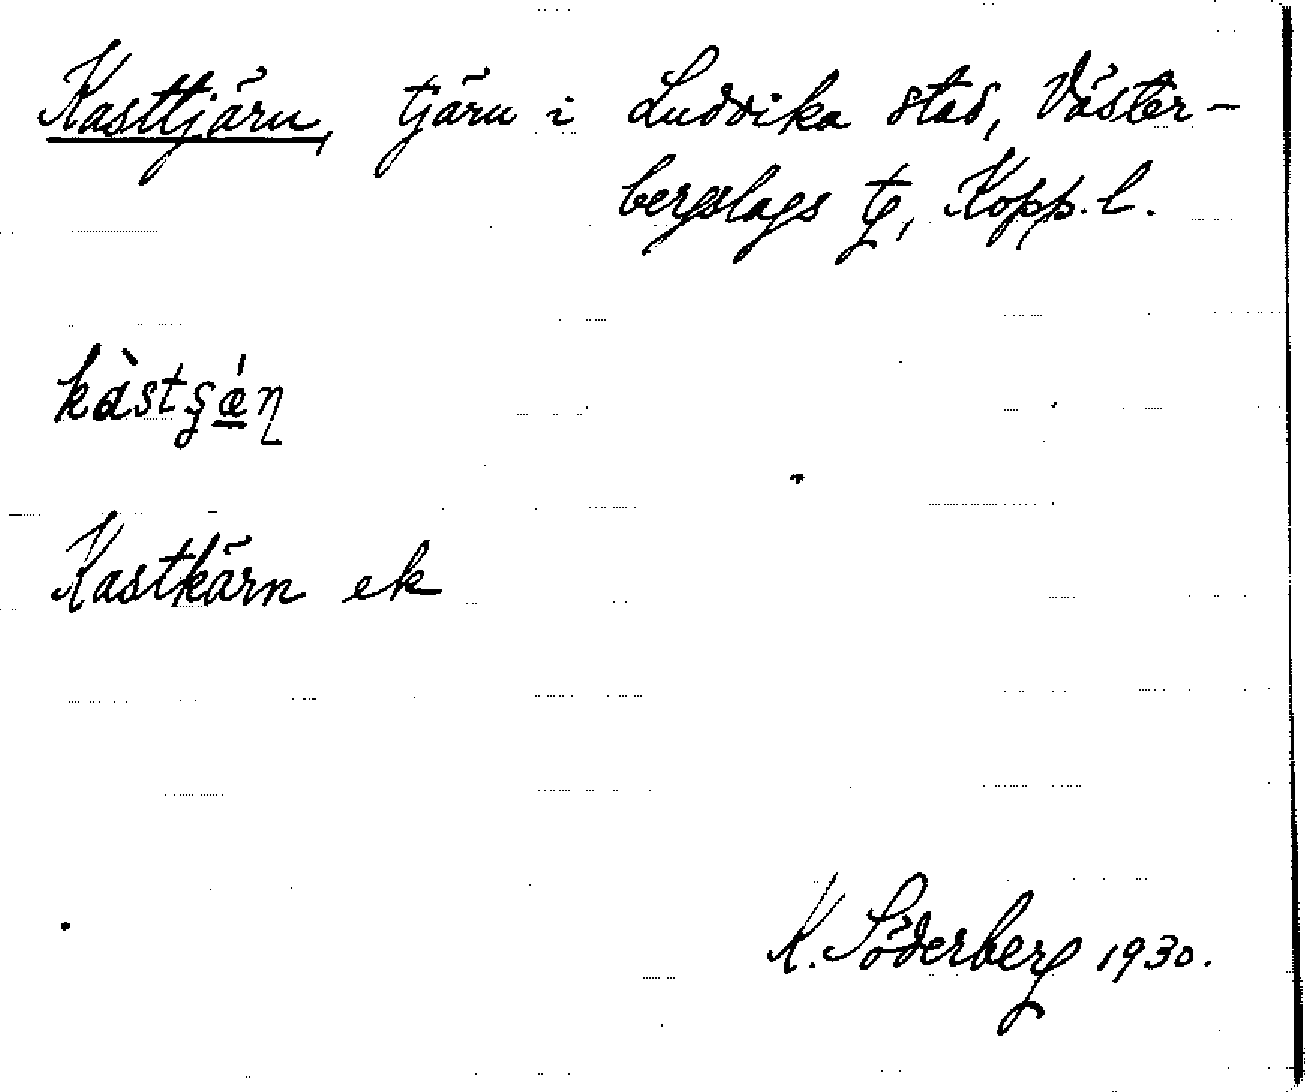 Kasttjärn, tjärn i Ludvika stad, Väster-
bergslags tg, Kopp. l.
kàstʂǽn̨
Kastkärn ek
K. Söderberg 1930.